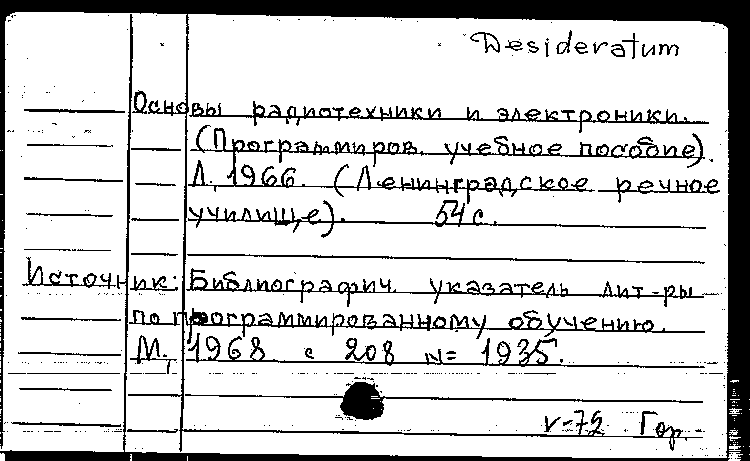 Desideratum
Основы радиотехники и электроники.
(Программиров. учебное пособие).
Л., 1966. (Ленинградское речное
училище). 54 с.
Источник: Библиографич. указатель лит-ры
по программированному обучению.
М., 1968 с 208 N= 1935.
V-72 Гор.